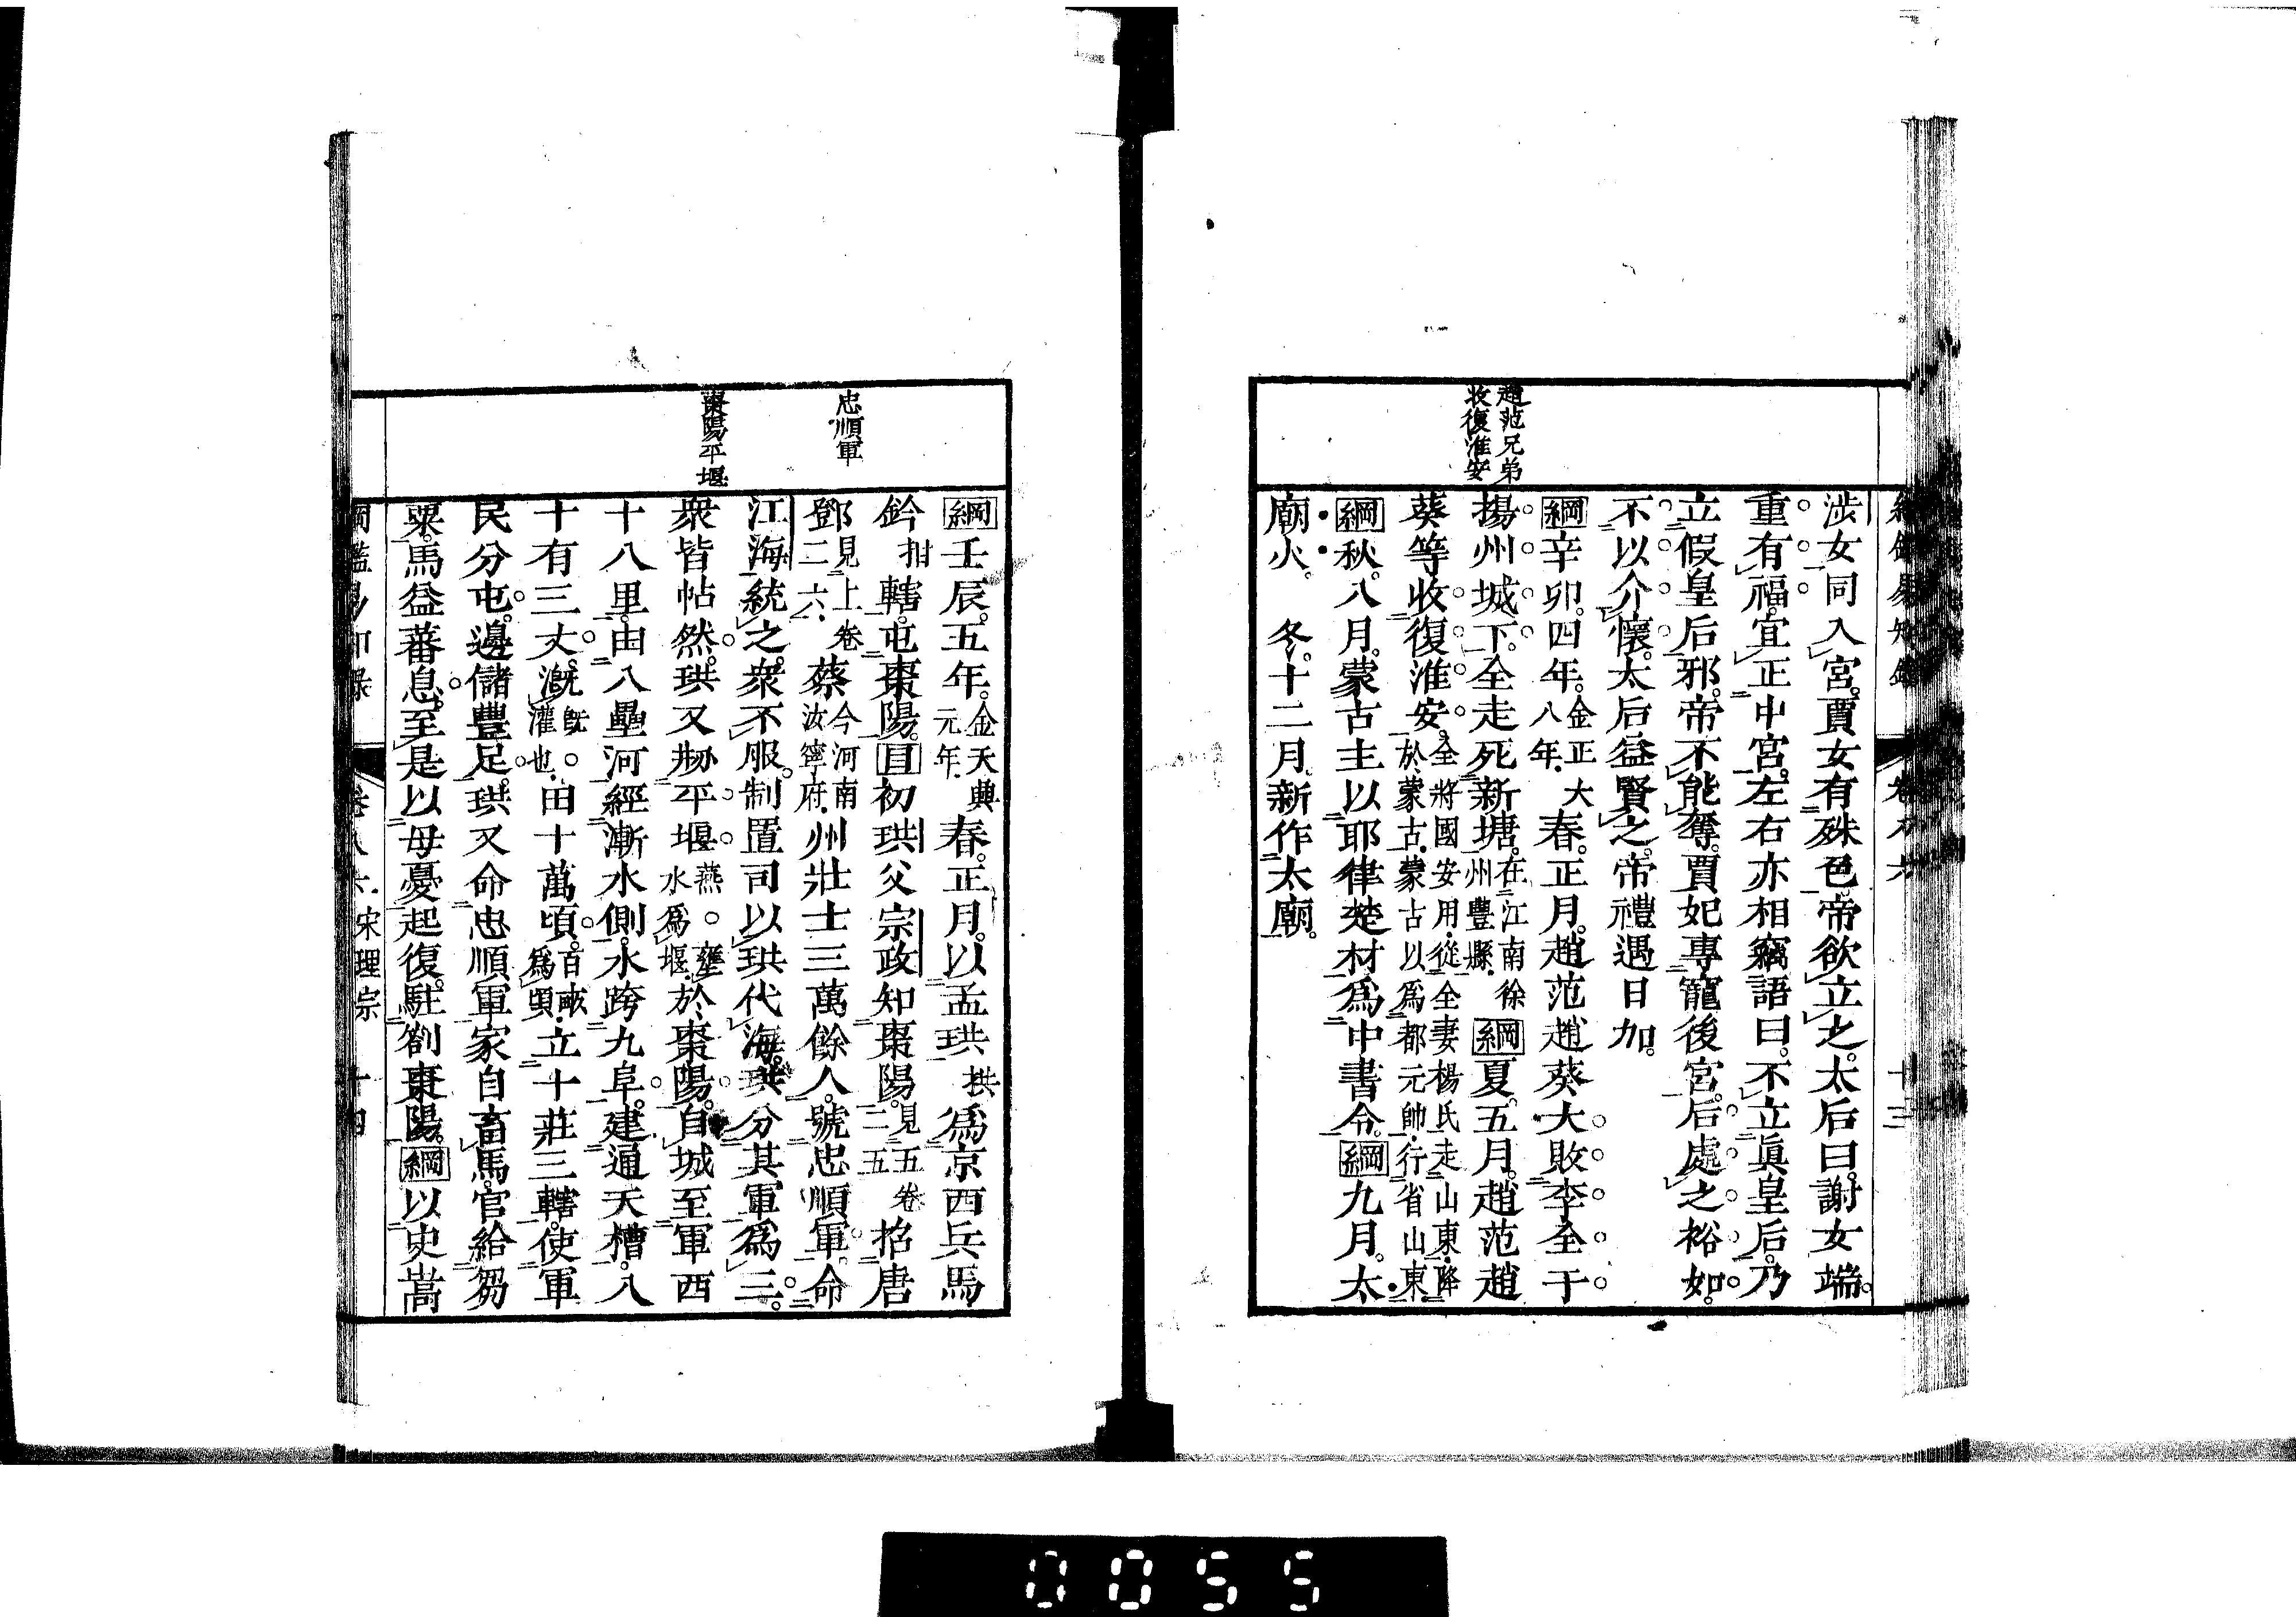 趙范兄弟
收復淮安
涉女同入宮。賈女有殊色。帝欲立之。太后曰。謝女端
重有福。宜正中宮。左右亦相竊語曰。不立眞皇后。乃
立假皇后邪。帝不能奪。賈妃專寵後宮。后處之裕如。
不以介懷。太后益賢之。帝禮遇日加。
綱辛卯。四年。金正大八年。春。正月。趙范趙葵大敗李全于
揚州城下。全走死新塘。在江南徐州豐縣。綱夏。五月。趙范趙
葵等收復淮安。全將國安用。從全妻楊氏走山東。降於蒙古。蒙古以爲都元帥。行省山東
綱秋。八月。蒙古主以耶律楚材爲中書令。綱九月。太
廟火。 冬。十二月。新作太廟。
卷八六
十三
忠順軍
棗陽平堰
綱壬辰。五年。金天興元年。春。正月。以孟珙拱爲京西兵馬
鈐拑轄。屯棗陽。目初珙父宗政知棗陽。見五卷二五招唐
鄧見上卷二六鄧蔡今河南汝寧府。州壯士三萬餘人。號忠順軍。命
江海統之。衆不服。制置司以珙代海。珙分其軍爲三。
衆皆帖然。珙又剏平堰燕。壅水爲堰。於棗陽。自城至軍西
十八里。由八壘河經漸水側。水跨九阜。建通天槽。八
十有三丈。漑旣。灌也。田十萬頃。百畝爲頃。立十莊三轄。使軍
民分屯。邊儲豐足。珙又命忠順軍家自畜馬。官給芻
粟。馬益蕃息。至是以母憂起復。駐劄棗陽。綱以史嵩
綱鑑易知錄
卷八六 宋理宗
十四
0055